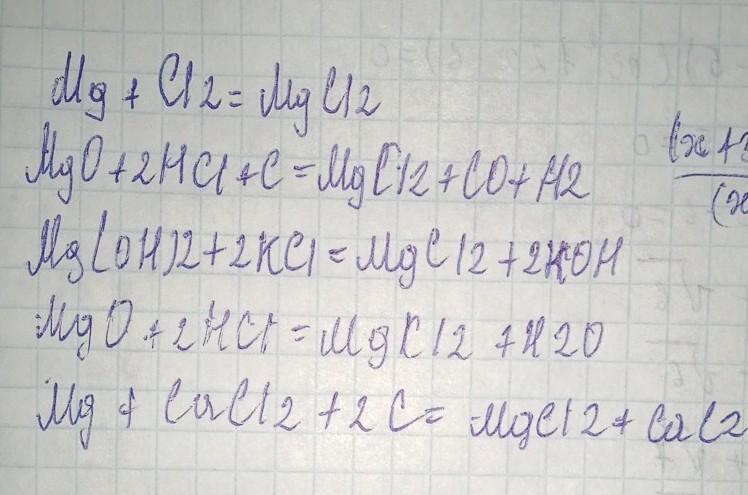 Mg + Cl2 = MgCl2
MgO + 2HCl + C = MgCl2 + CO + H2
(x+
(x
Mg(OH)2 + 2KCl = MgCl2 + 2KOH
MgO + 2HCl = MgCl2 + H2O
Mg + CaCl2 + 2C = MgCl2 + CaC2